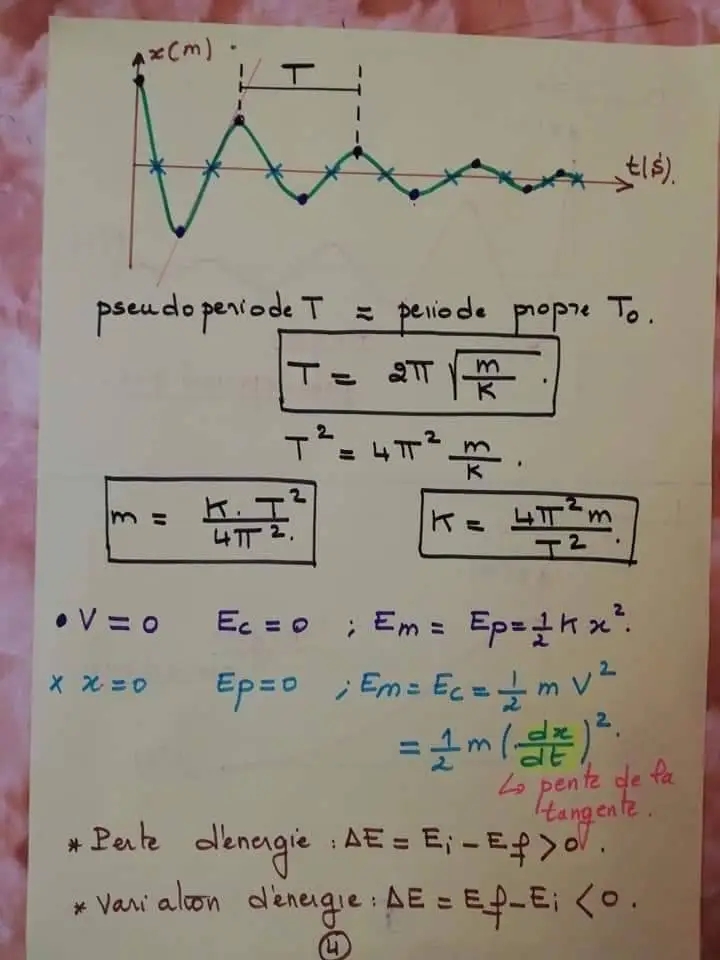 x(m)
T
t(s).
pseudo periode T ≈ periode propre T₀.
T = 2π √(m/K) .
T² = 4π² m/K .
m = K. T²/4π².
K = 4π²m/T².
• V = 0 Ec = 0 ; Em = Ep = 1/2 K x².
x x = 0 Ep = 0 ; Em = Ec = 1/2 m V²
= 1/2 m (dx/dt)².
↳ pente de la
tangente.
* Perte d'énergie : ΔE = Ei - Ef > 0.
* Variation d'énergie : ΔE = Ef - Ei < 0.
4